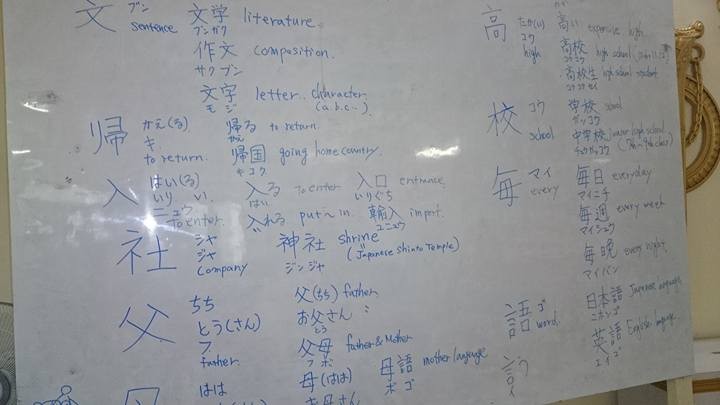 文 ブン sentence
文学 literature
ブンガク
作文 composition.
サクブン
文字 letter. character.
モジ (a.b.c..)
帰 かえ(る)
キ
to return.
帰る to return.
かえ
帰国 going home country.
キコク
入 はい(る)
いり い.
ニュウ
to enter.
入る to enter
はい
入口 entrance
いりぐち
入れる put~in
い
輸入 import.
ユニュウ
社 シャ
ジャ
company
神社 shrine
(Japanese Shinto Temple)
ジンジャ
父 ちち
とう(さん)
フ
father.
父(ちち) father
お父さん 〃
とう
父母 father & Mother
フボ
母
はは
母(はは)
お母さん
母語 mother language
ボゴ
高 たか(い)
コウ
high
高い expensive high
高校 high school
コウコウ
高校生 high school student
コウコウセイ
校 コウ
school
学校 school
ガッコウ
中学校 Junior high school
チュウガッコウ
毎 マイ
every
毎日 everyday
マイニチ
毎週 every week
マイシュウ
毎晩 every night
マイバン
語 ゴ
word.
日本語 Japanese language
ニホンゴ
英語 English language
エイゴ